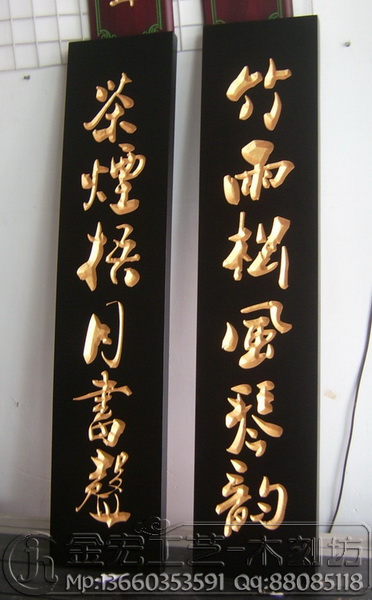 竹雨松風琴韵
茶煙梧月書聲
金宏工艺-木刻坊
Mp:13660353591 Qq:88085118